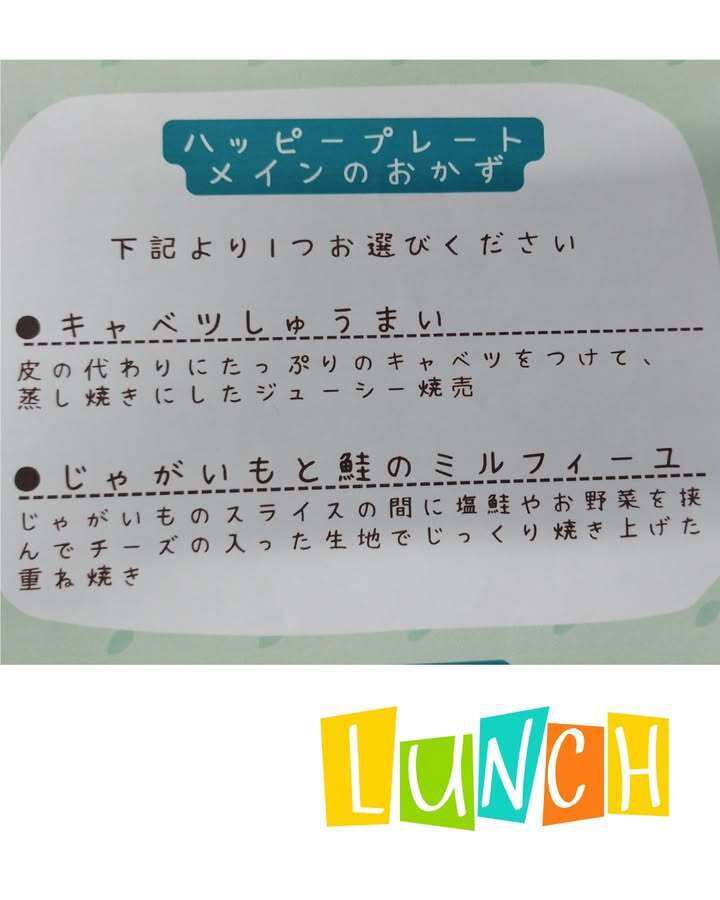 ハッピープレート
メインのおかず
下記より1つお選びください
● キャベツしゅうまい
皮の代わりにたっぷりのキャベツをつけて、
蒸し焼きにしたジューシー焼売
● じゃがいもと鮭のミルフィーユ
じゃがいものスライスの間に塩鮭やお野菜を挟
んでチーズの入った生地でじっくり焼き上げた
重ね焼き
LUNCH